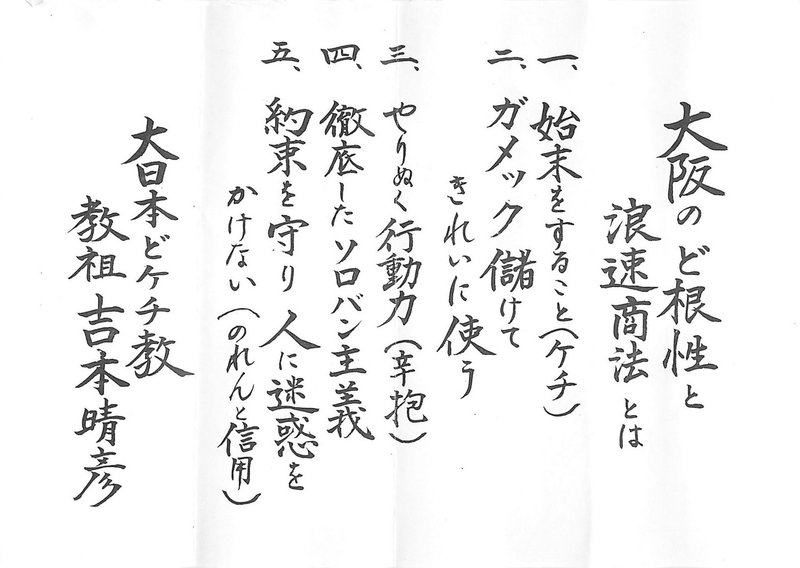 大阪のど根性と
浪速商法とは
一、始末をすること(ケチ)
二、ガメツク儲けて
きれいに使う
三、やりぬく行動力(辛抱)
四、徹底したソロバン主義
五、約束を守り人に迷惑を
かけない(のれんと信用)
大日本どケチ教
教祖吉本晴彦